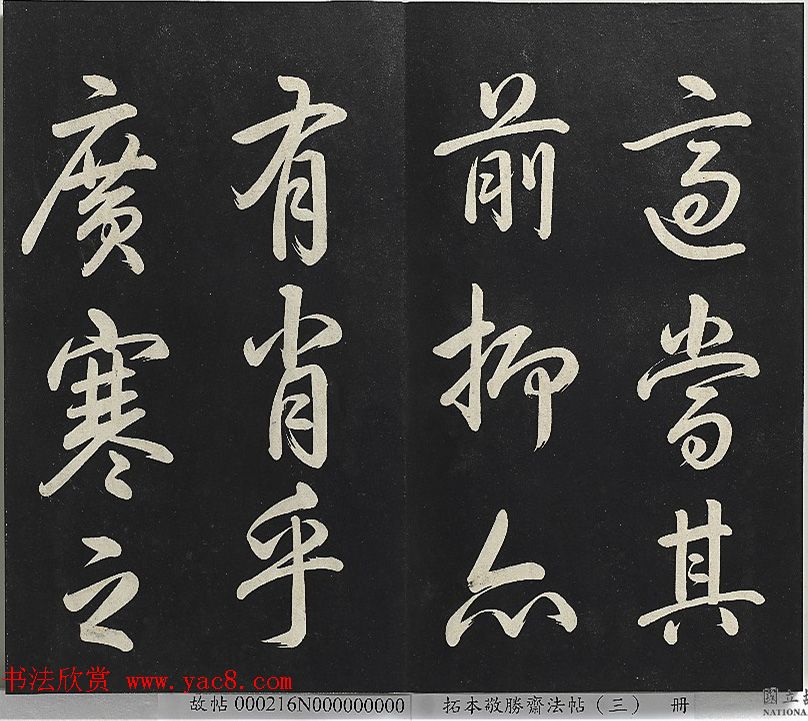 適當其
前抑亦
有肖乎
廣寒之
书法欣赏 www.yac8.com
故帖 000216N000000000
拓本敬勝齋法帖(三) 册
國立
NATIONA